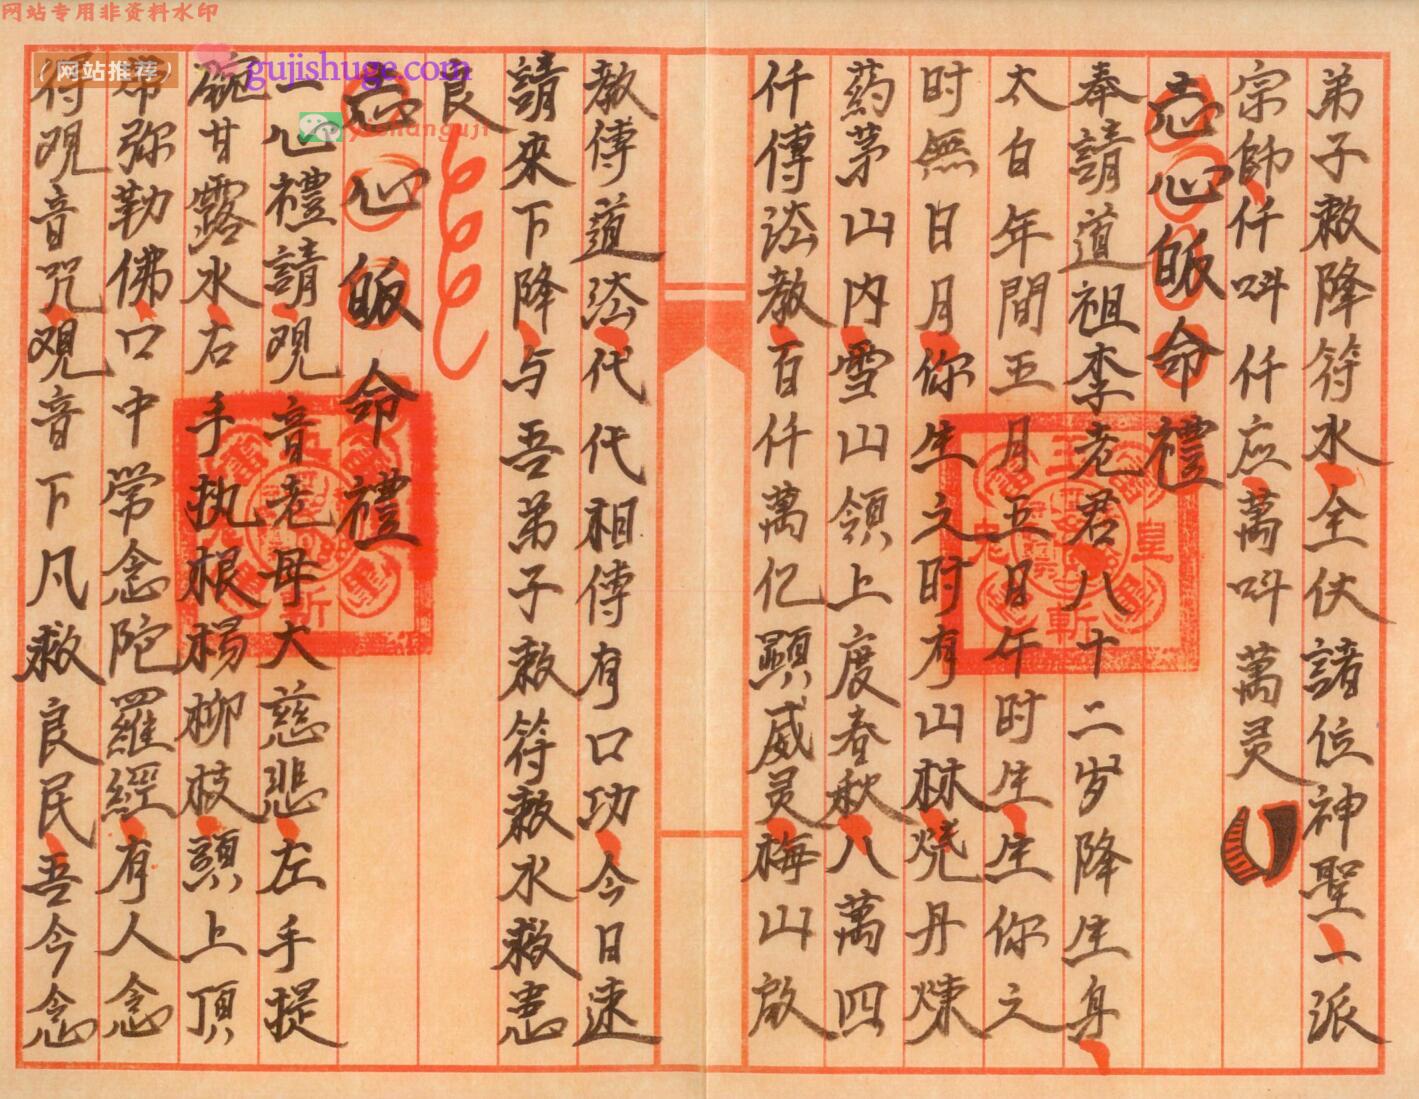 网站专用非资料水印
(网站推荐)
gujishuge.com
yishanguji
弟子敕降符水全伏諸位神聖一派
宗師仟叫仟应萬叫萬灵
志心皈命禮
奉請道祖李老君八十二岁降生身
太白年間五月五日午时生生你之
时無日月你生之时有山林燒丹煉
葯茅山内雪山領上度春秋八萬四
仟傳法教百仟萬亿顕威灵梅山啟
教傳道法代代相傳有口功今日速
請來下降与吾弟子敕符敕水救患
良
志心皈命禮
一心禮請观音老母大慈悲左手提
碗甘露水右手执根楊柳枝頭上頂
帶弥勒佛口中常念陀羅經有人念
得观音咒观音下凡救良民吾今念